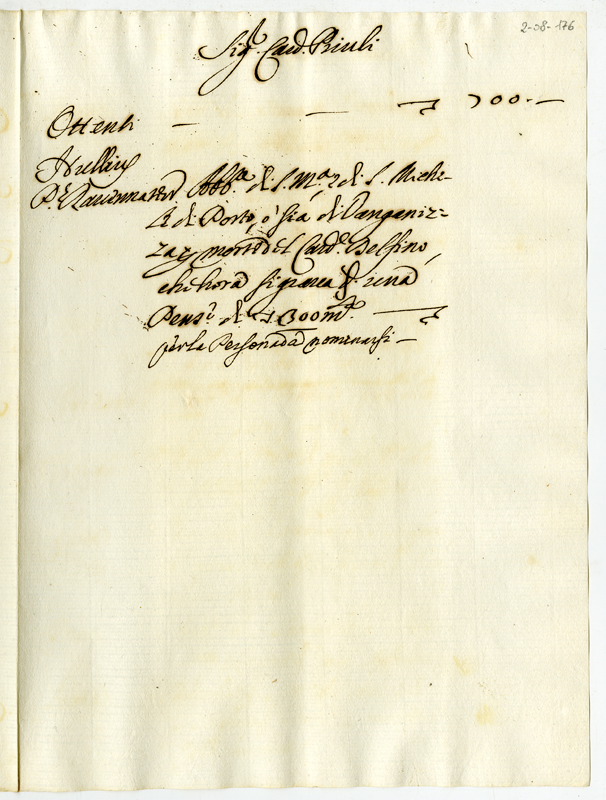 2-08-176
Sig.r Card. Priuli
Ottenti — — 700. —
Nullius
P.o Rauennaten Abb.a di S. M.a, e di S. Miche-
le di Porto, ò sia di Vangadiz=
za per morte del Card.l Delfino,
che hora si graua d'una
Pens.e di 1300 m.ta
per la Persona da nominarsi —